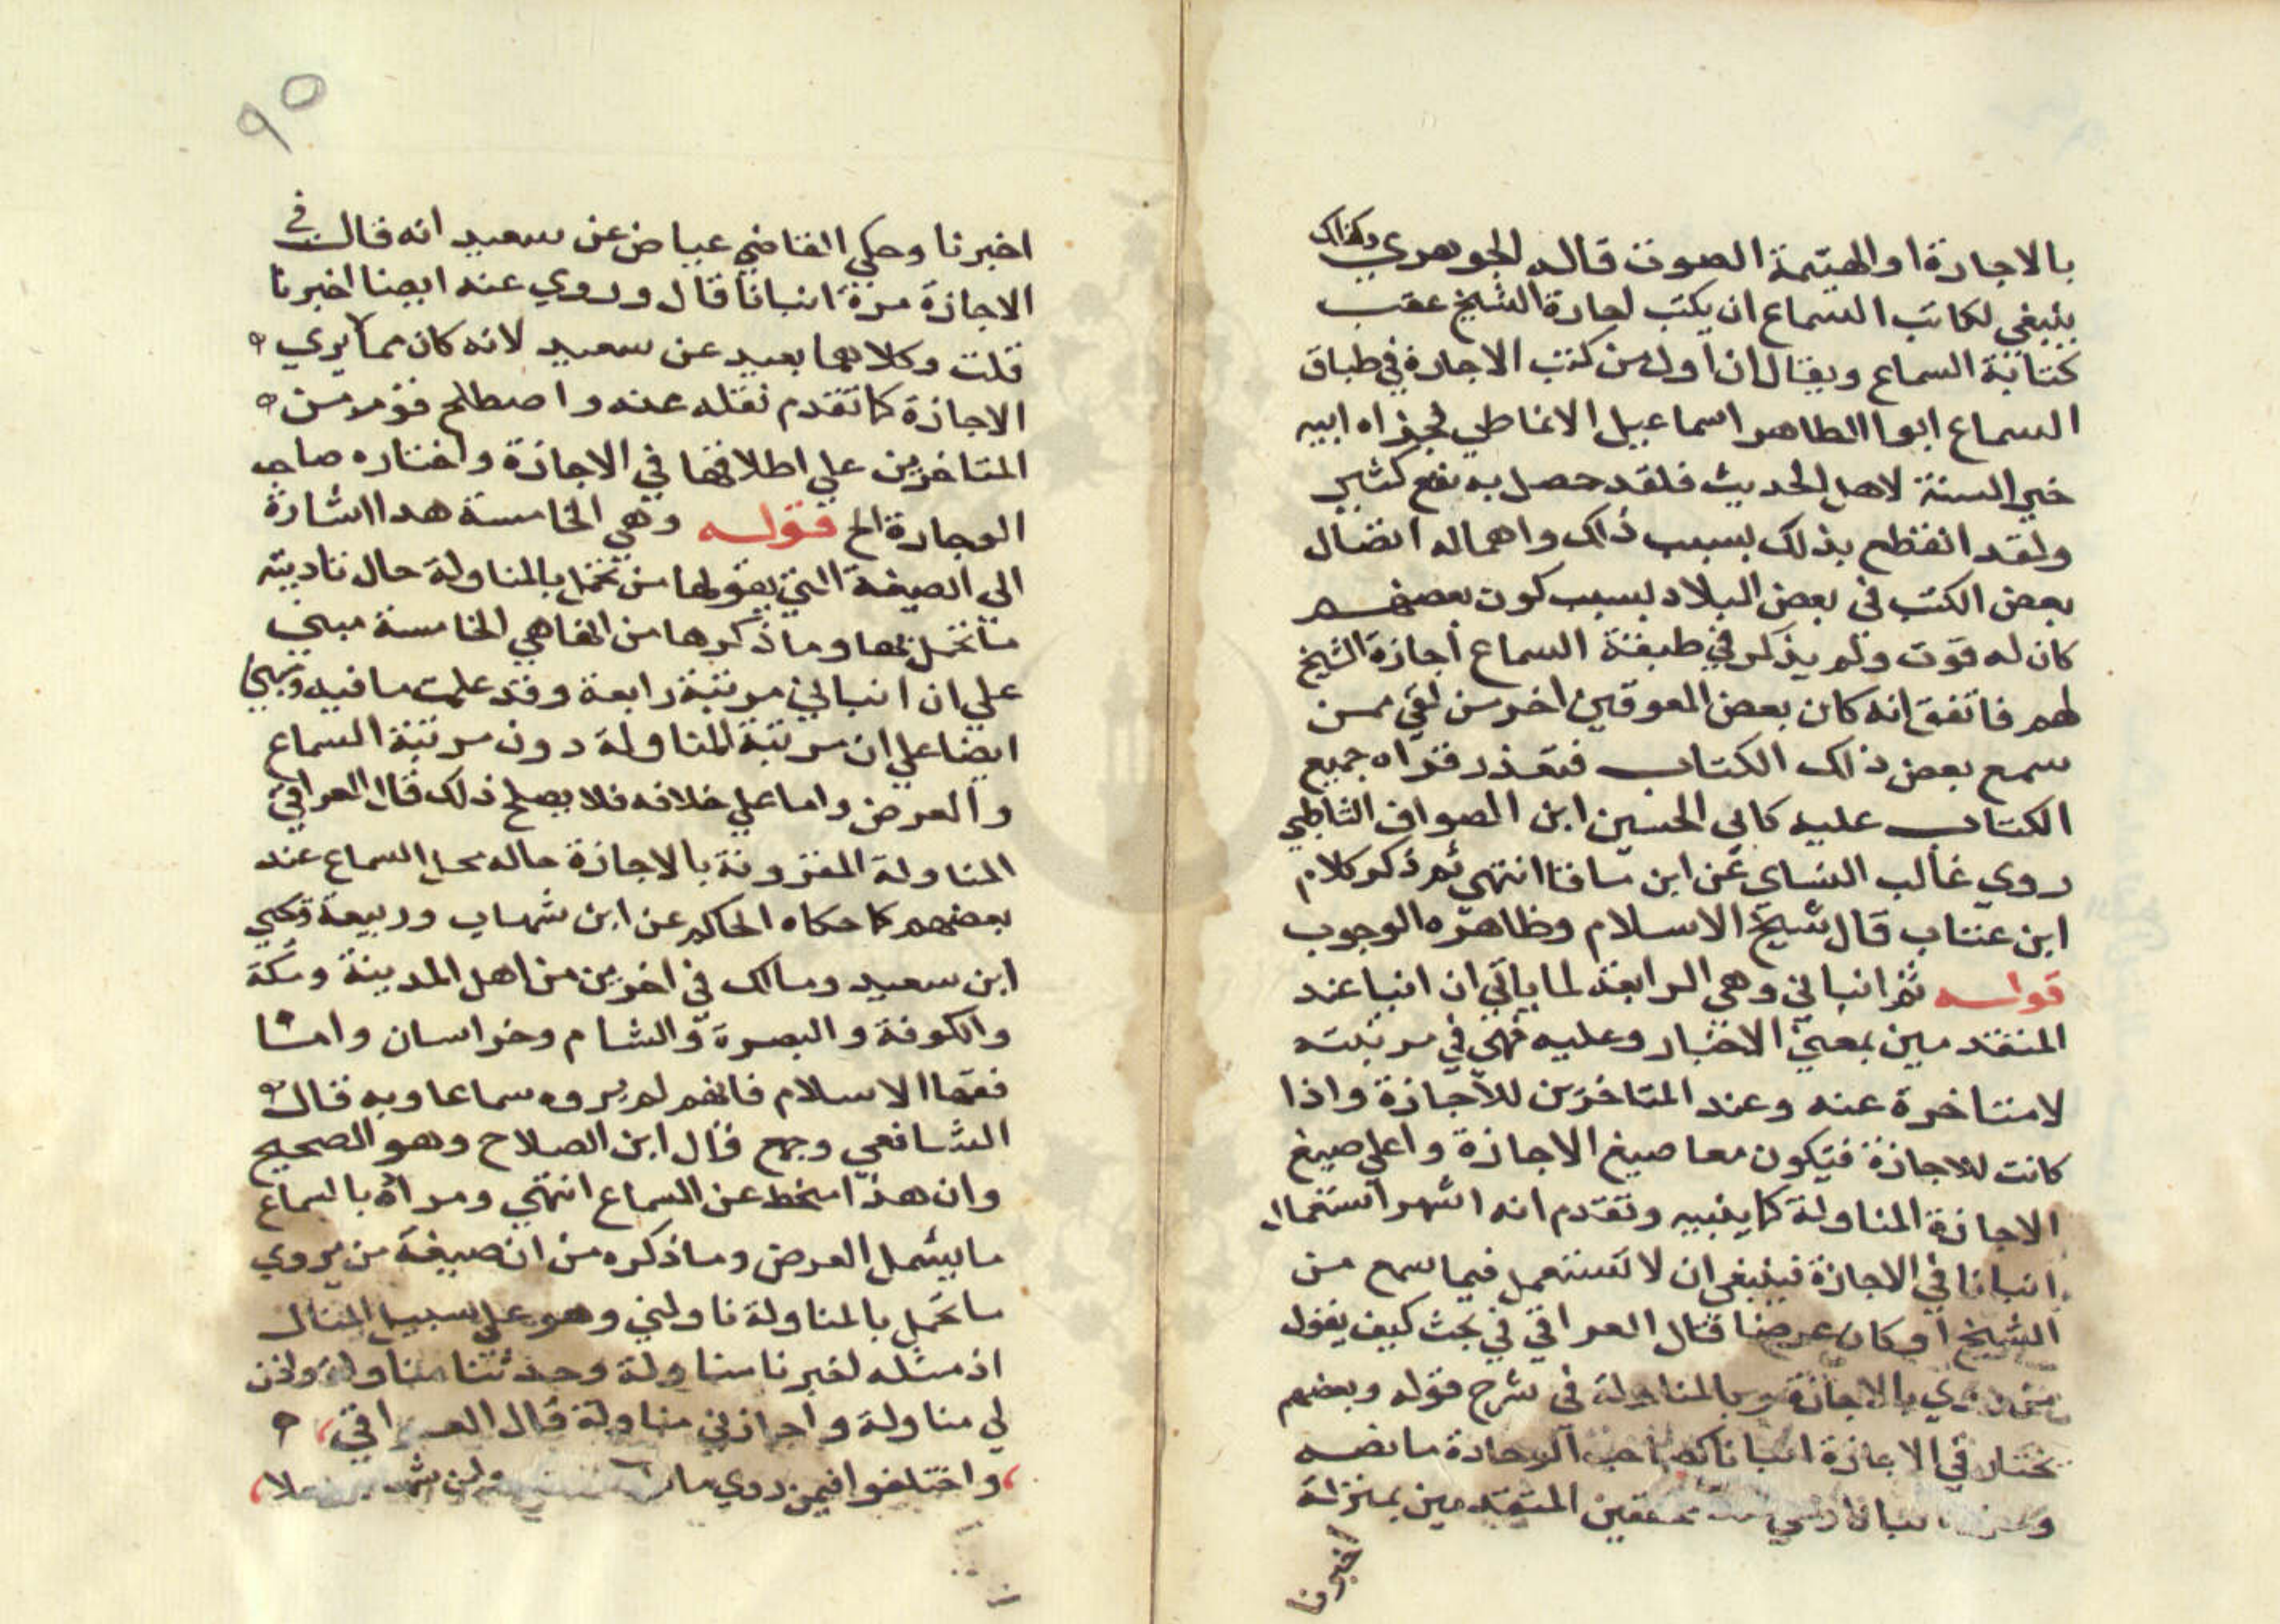 بالاجازة او الهيتمة الصوت قاله الجوهري وكذلك
ينبغي لكاتب السماع ان يكتب اجازة الشيخ عقب
كتابة السماع ويقال ان اول من كتب الاجازة في طباق
السماع ابوا الطاهر اسماعيل الانماطي فجزاه ابيه
خير السنة لاهل الحديث فلقد حصل به نفع كثير
ولقد انقطع بذلك بسبب ذلك واهماله اتصال
بعض الكتب في بعض البلاد بسبب كون بعضهم
كان له فوت ولم يذكر في طبقة السماع اجازة الشيخ
لهم فاتفق انه كان بعض المعوقين اخر من لقي ممن
سمع بعض ذلك الكتاب فتعذر قراه جميع
الكتاب عليه كابي الحسين ابن الصواف الشاطبي
روي غالب النساي عن ابن ساقا انتهي ثم ذكر كلام
ابن عتاب قال شيخ الاسلام وظاهره الوجوب
قوله ثم انباني وهي الرابعة لما ياتي ان انبا عند
المتقدمين بمعني الاخبار وعليه فهي في مرتبته
لا متاخرة عنه وعند المتاخرين للاجازة واذا
كانت للاجازة فيكون معا صيغ الاجازة واعلي صيغ
الاجازة المناولة كما ينبيه وتقدم انه اشهر استعمال
انبانا في الاجازة فينبغي ان لا تستعمل فيما سمع من
الشيخ او كان عرضا قال العراقي في بحث كيف يقول
من روي بالاجازة وبالمناولة في شرح قوله وبعضهم
يختار في الاجازة انبانا كصاحب الوجادة ما نصه
انبانا المتقدمين بمنزلة
اخبرنا
٩٥
اخبرنا وحكي القاضي عياض عن سعيد انه قال في
الاجازة مرة انبانا قال وروي عنه ايضا اخبرنا
قلت وكلاهما بعيد عن سعيد لانه كان مما يري
الاجازة كما تقدم نقله عنه واصطلح قوم من
المتاخرين علي اطلاقها في الاجازة واختاره صاحب
الوجازة الخ قوله وهي الخامسة هدا اشارة
الي الصيغة التي يقولها من تحمل بالمناولة حال تاديته
ما تحمل بها وما ذكرها من انها هي الخامسة مبني
علي ان انباني مرتبة رابعة وقد علمت ما فيه ويبني
ايضا علي ان مرتبة المناولة دون مرتبة السماع
والعرض واما علي خلافه فلا يصلح ذلك قال العراقي
المناولة المقرونة بالاجازة حاله محل السماع عند
بعضهم كما حكاه الحاكم عن ابن شهاب وربيعة ويحيي
ابن سعيد ومالك في اخرين من اهل المدينة ومكة
والكوفة والبصرة والشام وخراسان واما
فقها الاسلام فانهم لم يروه سماعا وبه قال
الشافعي وجمع قال ابن الصلاح وهو الصحيح
وان هذا منحط عن السماع انتهي ومراده بالسماع
ما يشمل العرض وما ذكره من ان صيغة من يروي
ما تحمل بالمناولة ناولني وهو علي سبيل المثال
اذ مثله اخبرنا مناولة وحدثنا مناولة واذن
لي مناولة واجازني مناولة قال العراقي
واختلفوا فيمن روي ما